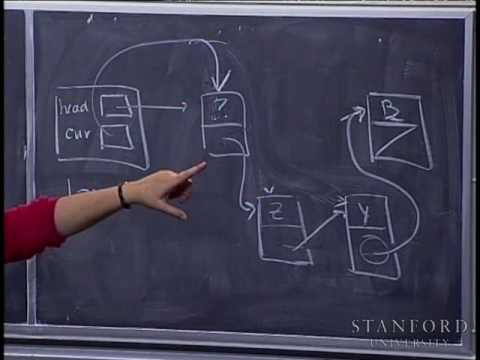 head
cur
?
Z
Y
B
STANFORD
UNIVERSITY